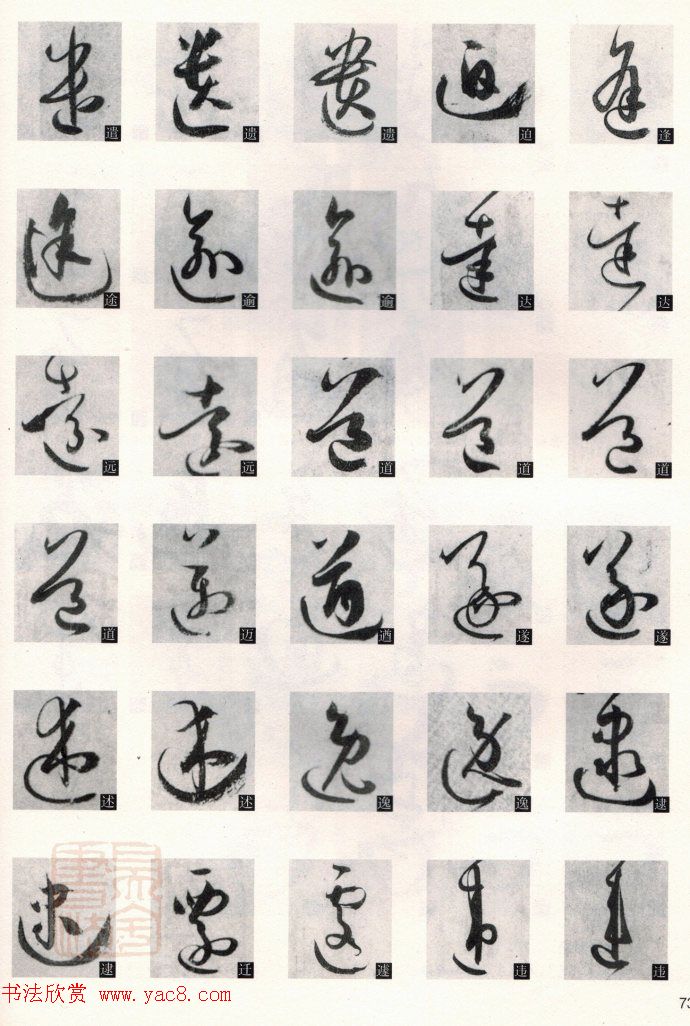 遣 遗 遗 迫 逢
途 逾 逾 达 达
远 远 道 道 道
道 迈 遒 遂 遂
述 述 逸 逸 逮
逮 迁 遽 违 违
书法欣赏 www.yac8.com
73